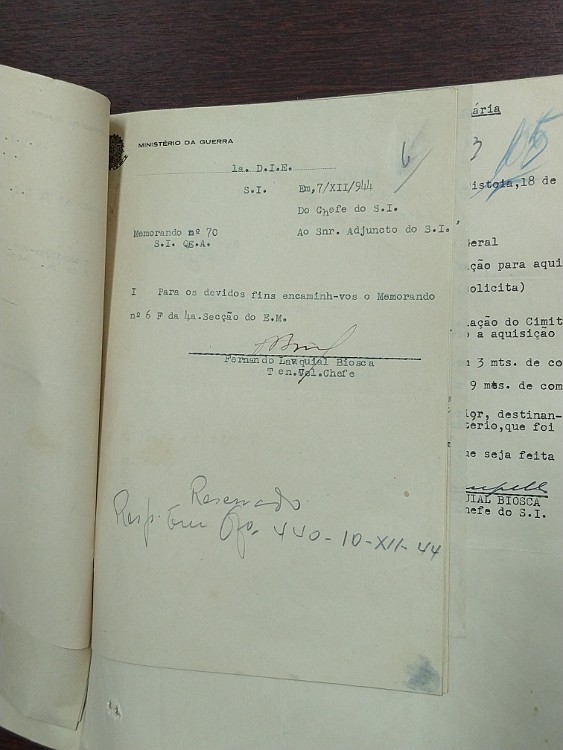 MINISTÉRIO DA GUERRA
6
1a. D.I.E.
S.I. Em,7/XII/944
Do Chefe do S.I.
Memorando nº 70 Ao Snr. Adjuncto do S.I.
S.I. QE.A.
I Para os devidos fins encaminh-vos o Memorando
nº 6 F da 4a.Secção do E.M.
Fernando Lavquial Biosca
Ten.Cel.Chefe
Reservado
Resp. Em Ofo. 440-10-XII-44
ária
3
105
istoia,18 de
eral
ção para aqui
olicita)
ação do Cimit
a aquisição
3 mts. de co
9 mts. de com
lor, destinan-
tério,que foi
ue seja feita
UIAL BIOSCA
hefe do S.I.